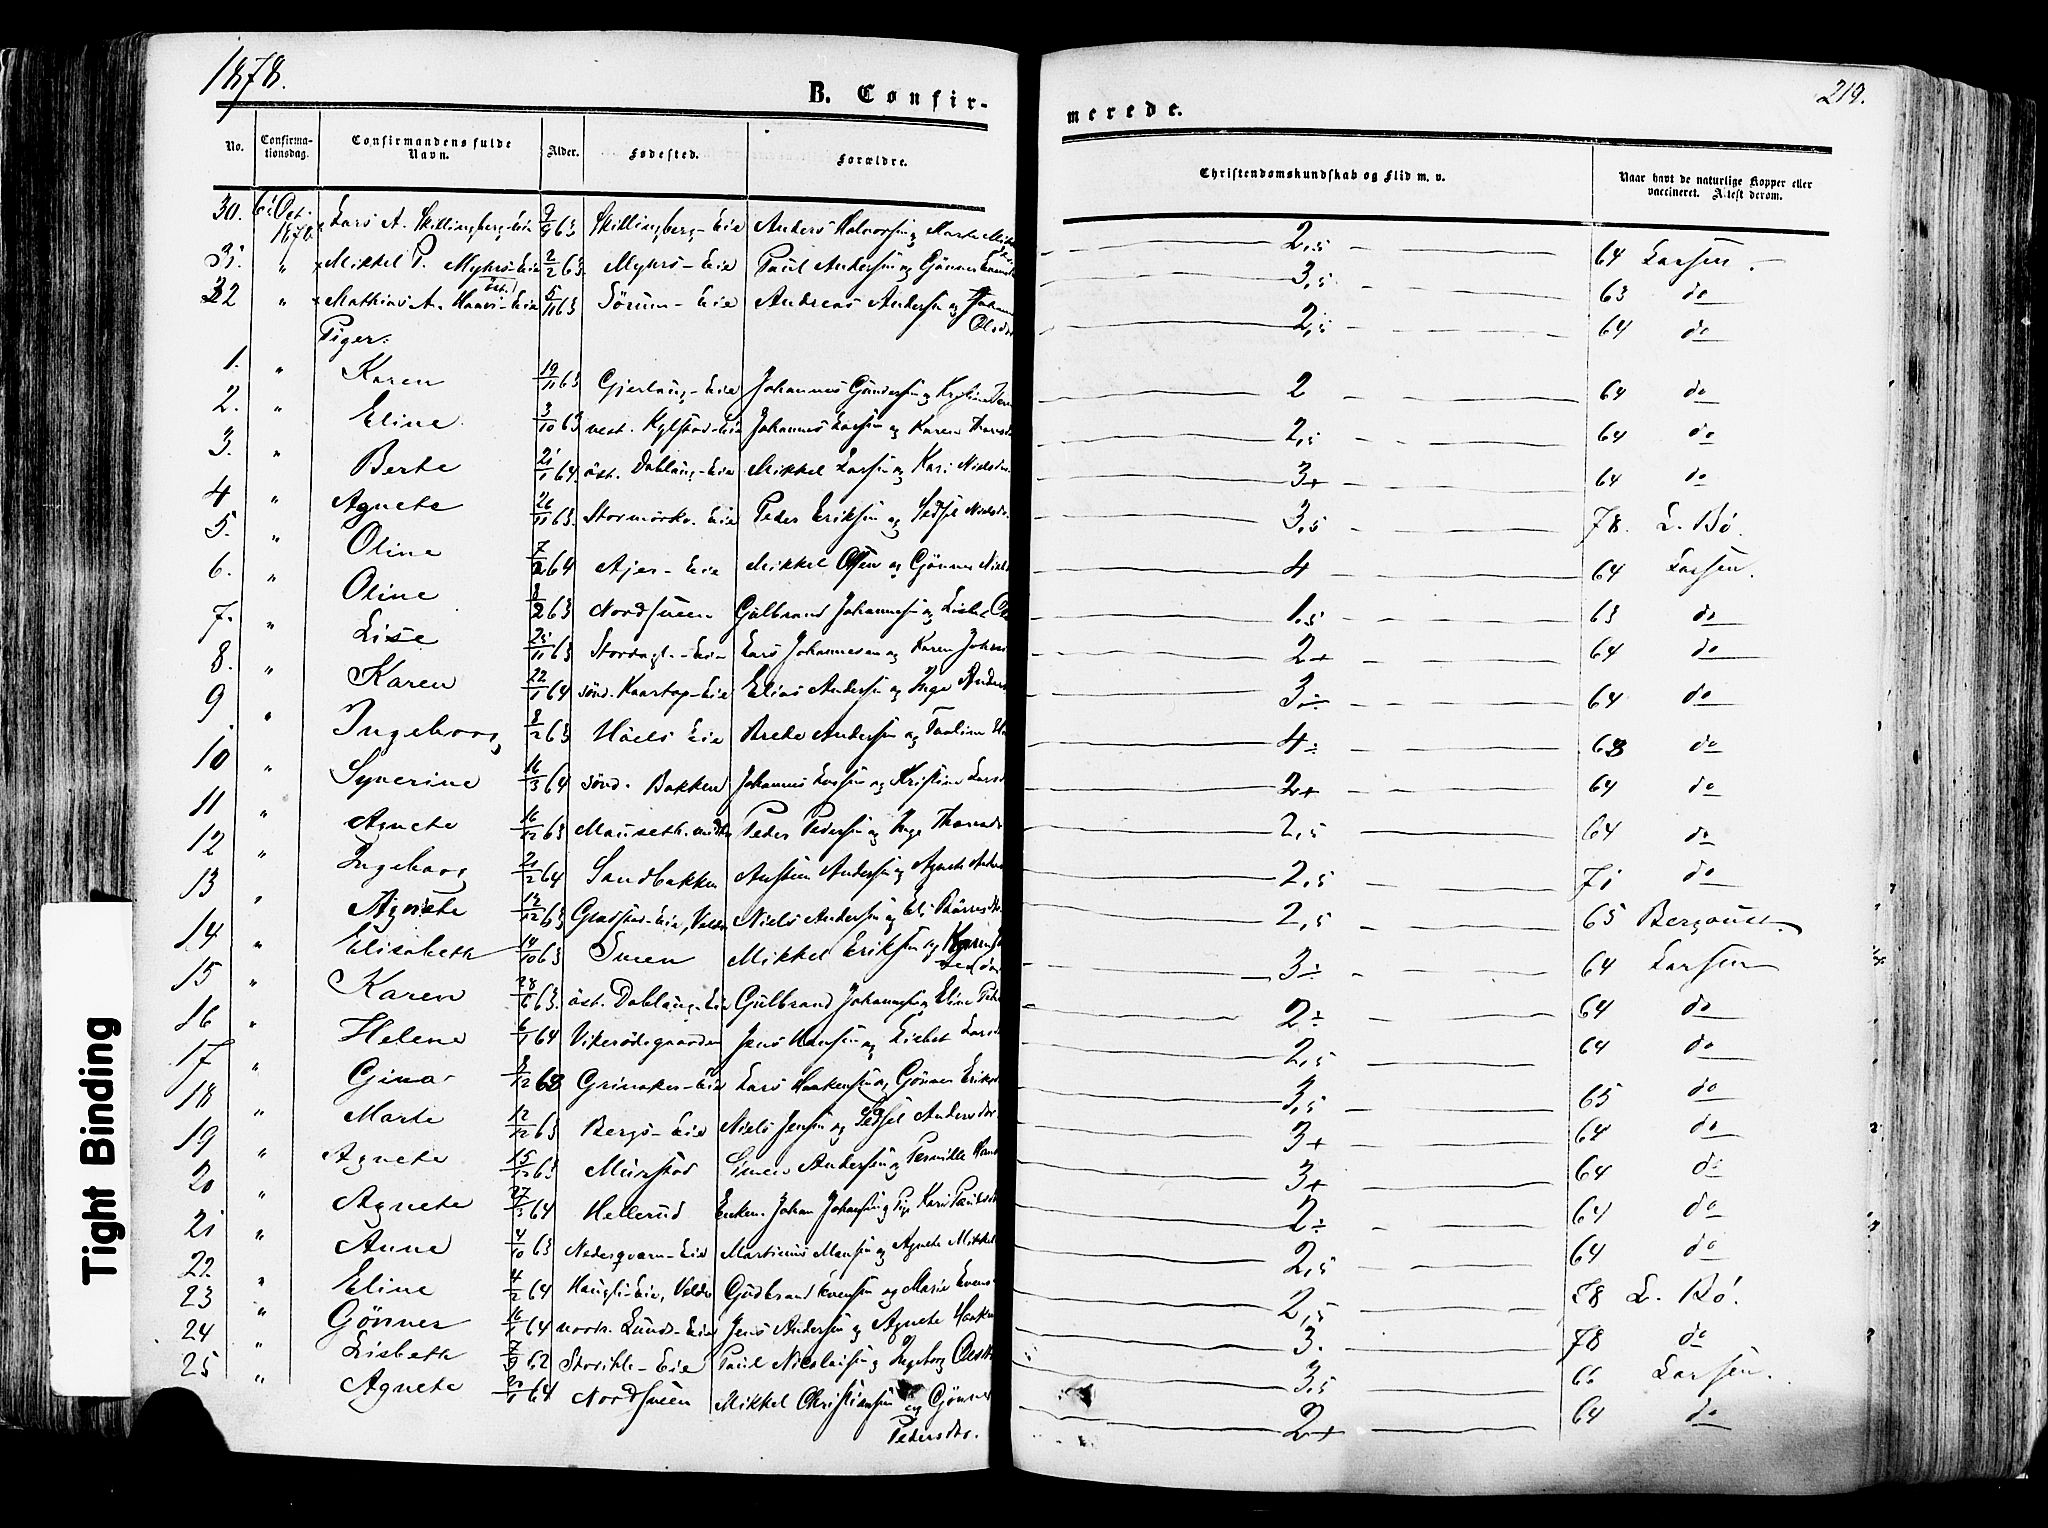 1878.
B. Confir-
merede.
219.
No. Confirma-tionsdag. Confirmandens fulde Navn. Alder. Fødested. Forældre. Christendomskundskab og Flid m. v. Naar havt de naturlige Kopper eller vaccineret. Attest derom.
30. 6te Oct. 1878 Lars A. Skillingberg-Eie 9/9 63 Skillingberg-Eie Anders Halvorsen og Marte 2,5 64 Larsen
31. " Mikkel P. Myhrs-Eie 2/2 63 Myhrs-Eie Paul Andersen og Gønner 3,5 63 do
32 " Mathias A. Haavi-Eie 5/11 63 Sörum-Eie Andreas Andersen og Olsdr 2,5 64 do
Piger:
1. " Karen 19/11 63 Gjerlaug-Eie Johannes Gundersen og Kristine 2 64 do
2. " Eline 3/10 63 vest. Kylstad-Eie Johannes Larsen og Karen 2,5 64 do
3. " Berte 21/1 64. öst. Dahlaug-Eie Mikkel Larsen og Kari Nielsdr. 3+ 64 do
4 " Agnete 26/11 63. Stormörk. Eie Peder Eriksen og Sidsel Nielsdr. 3,5 78. L. Bö.
5. " Oline 7/2 64 Ajer-Eie Mikkel Olsen og Gönner Niels 4 64 Larsen.
6. " Oline 8/2 63 Nordsveen Gulbrand Johannesen og Lisbet 1,5 63 do
7. " Lise 25/11 63 Eie Lars Johannesen og Karen Johan 2+ 64 do
8. " Karen 22/1 64 sönd. Kaarstap-Eie Elias Andersen og Inge Anders 3÷ 64 do
9 " Ingeborg 8/2 63 Hoels Eie Andersen og Pauline 4÷ 63 do
10 " Syverine 16/3 64 sönd. Bakken Johannes Larsen og Kristine Lars 2+ 64 do
11 " Agnete 16/12 63 Mauseth Peder Pedersen og Inge 2,5 64 do
12 " Ingeborg 21/2 64 Sandbakken Andersen og Agnete Anders 2,5 71 do
13 " Agnete 12/12 63 Eie, Niels Andersen og 2,5 65 Bergaust.
14 " Elisabeth 14/10 63 Sveen Mikkel Eriksen og Karen 3÷ 64 Larsen
15 " Karen 28/6 63. öst. Dahlaug-Eie Gulbrand Johannesen og Eline Peder 2÷ 64 do
16 " Helene 6/1 64 Vikerödegaarden Jens Hansen og Lisbet Lars 2,5 64 do
17 " Gina 8/12 62 Grinaker-Eie Lars Haakensen og Gönner Eriks 3,5 65 do
18 " Marte 12/12 63 Bergs-Eie Niels Jensen og Sidsel Andersdr. 3+ 64 do
19 " Agnete 15/12 63 Murstad Simen Andersen og Pernille Hans 3+ 64 do
20 " Agnete 27/ 64 Hellerud Enkem. Johan Johansen og Pige Kari Paulsdr 2÷ 64 do
21 " Anne 4/10 63 Nedreqvern-Eie Martinus Hansen og Agnete Mikkel 2,5 64 do
22. " Eline 4/2 64 Haugli-Eie, Gudbrand Evensen og Marie Evens 2,5 78 L. Bö.
23 " Gönner 16/1 64 nordr. Lunds-Eie Jens Andersen og Agnete Haaken 3. 78 do
24 " Lisbeth 7/9 62 Eie Paul Nicolaisen og Ingeborg Olsdr 3,5 66 Larsen.
25 " Agnete 2/1 64 Nordsveen Mikkel Christiansen og Gönner Pedersdr. 2+ 64 do
Tight Binding